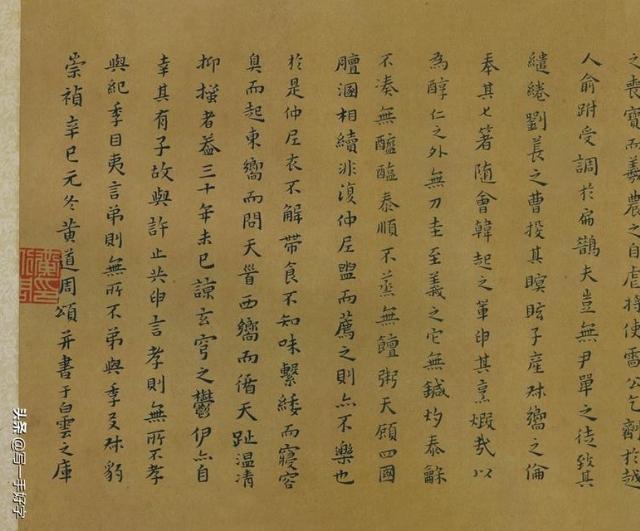 之喪寶而羲農之自虐將使雷公乞劑於越
人俞跗受調於扁鵲夫豈無尹單之徒致其
繾綣劉萇之曹投其瞑眩子產叔嚮之倫
奉其匕箸随會韓起之軰申其烹煅哉以
為醇仁之外無刀圭至義之它無鍼灼泰龢
不湊無醯醢泰順不蒸無饘粥天顧四國
膻溷相續非復仲尼盥而薦之則亦不樂也
於是仲尼衣不解帶食不知味繫緌而寢容
臭而起東嚮而問天晉西嚮而循天趾温凊
抑搔者葢三十年未已諒玄穹之鬱伊亦自
幸其有子故與許止共申言孝則無所不孝
與紀季目夷言弟則無所不弟與季友叔豹
崇禎辛巳元冬黃道周頌并書于白雲之庫
头条@写一手好字